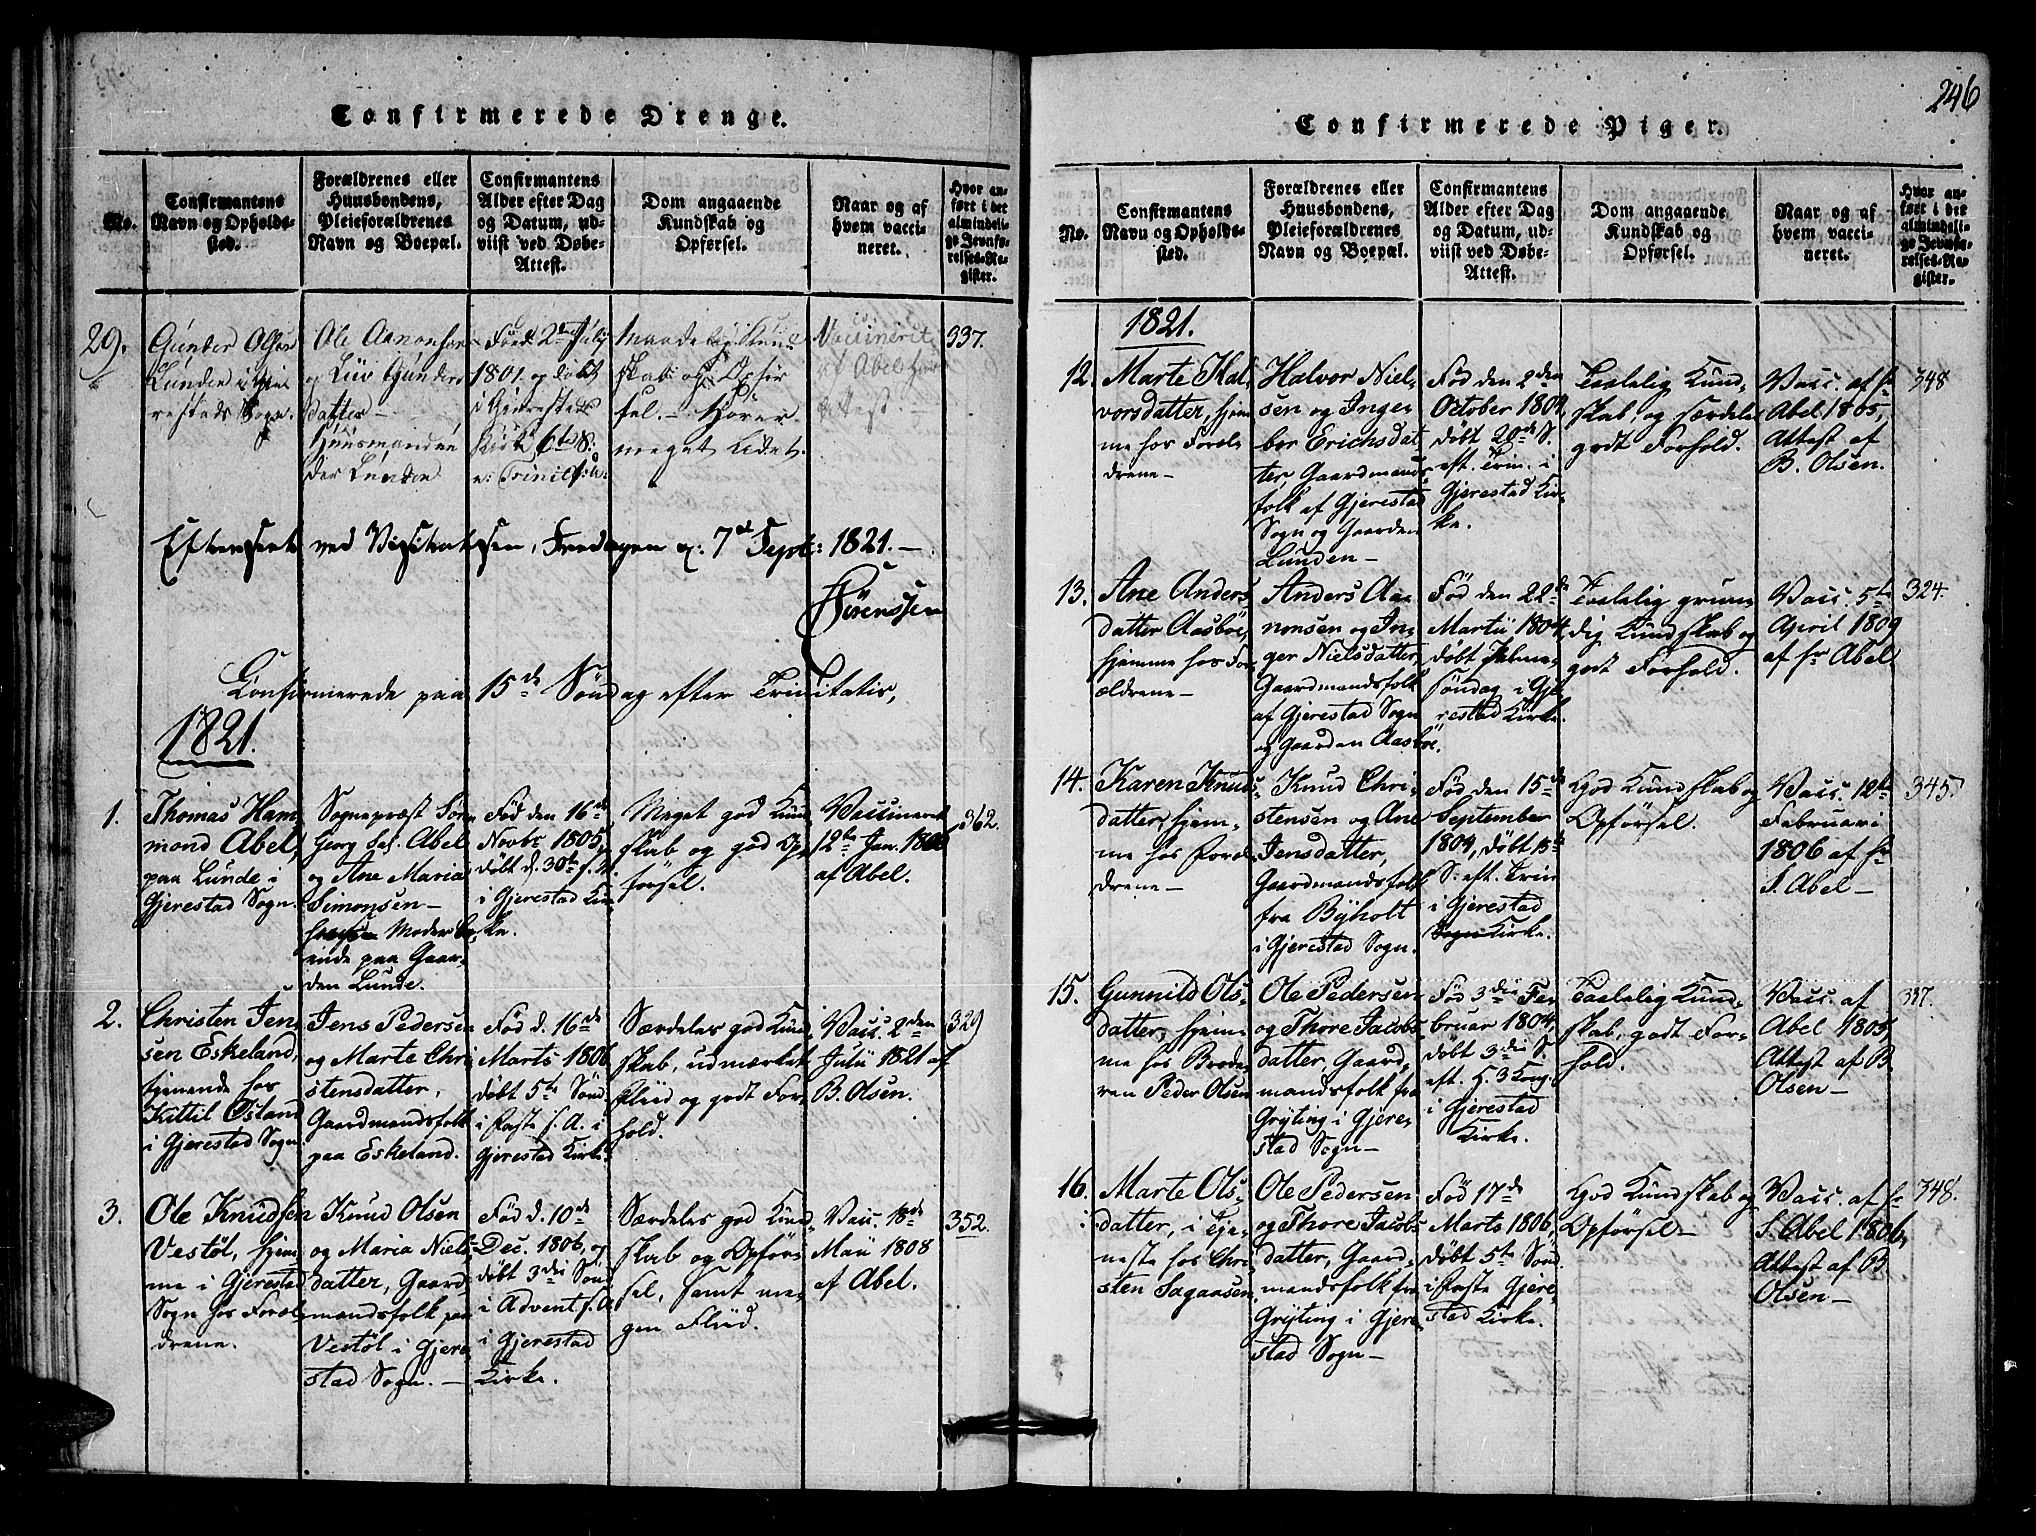 246
Confirmerede Drenge.
No.
Confirmantens
Navn og Opholds-
sted.
Forældrenes eller
Huusbondens,
Pleieforældrenes
Navn og Boepæl.
Confirmantens
Alder efter Dag
og Datum, ud-
viist ved Døbe-
Attest.
Dom angaaende
Kundskab og
Opførsel.
Naar og af
hvem vacci-
neret.
Hvor an-
ført i det
almindeli-
ge Jevnfø-
relses-Re-
gister.
29.
Gunder Olsen
Lunden i Gie
restads Sogn.
Ole Aanonsen
og Liv Gunders
datter
Huusmand
der Lunden
Fød 2den July
1801. og døbt
i Gierestad
Kirke 6te S.
e: Trinit:
Maadelig Kund
skab og Opfør
sel. - Hører
meget lidet.
Vaccineret
af Abel
Attest. -
337.
Efterseet ved Visitatsen, Fredagen d: 7de Sept: 1821. -
Sörenssen
Confirmerede paa 15de Søndag efter Trinitatis,
1821.
1.
Thomas Ham
mond Abel,
paa Lunde i
Gjerestad Sogn.
Sognepræst Søn
Georg Abel
og Ane Maria
Simonsen -
Moder bo
ende paa Gaar
den Lunde.
Fød den 16de
Novbr 1805,
døbt d. 30te s. M.
i Gjerestad Kir
ke.
Meget god Kund
skab og god Op
førsel.
Vaccineret
12te Jan. 1806
af Abel.
362.
2.
Christen Jen
sen Eskeland,
tjenende hos
Kittil Østand
i Gjerestad Sogn
Jens Pedersen
og Marte Chri
stensdatter,
Gaardmandsfolk
paa Eskeland.
Fød d. 16de
Marts 1806
døbt 5te Sønd
i Faste s. A. i
Gjerestad Kirke.
Særdeles god Kund
skab, udmærket
Fliid og godt For
hold.
Vacc. 2den
Julii 1821 af
B. Olsen.
329
3.
Ole Knudsen
Vestøl, hjem
me i Gjerestad
Sogn hos Foræl
drene.
Knud Olsen
og Maria Niels
datter, Gaard
mandsfolk paa
Vestøl i Gjere
stad Sogn. -
Fød d. 10de
Dec. 1806, og
døbt 3die Søn
i Advent s. A.
i Gjerestad
Kirke.
Særdeles god Kund
skab og Opfør
sel, samt me
gen Fliid.
Vacc. 18de
Maii 1808
af Abel.
352.
Confirmerede Piger.
No.
Confirmantens
Navn og Opholds-
sted.
Forældrenes eller
Huusbondens,
Pleieforældrenes
Navn og Boepæl.
Confirmantens
Alder efter Dag
og Datum, ud-
viist ved Døbe-
Attest.
Dom angaaende
Kundskab og
Opførsel.
Naar og af
hvem vacci-
neret.
Hvor an-
ført i det
almindeli-
ge Jevnfø-
relses-Re-
gister.
1821.
12.
Marte Hal
vorsdatter, hjem
me hos Foræl
drene -
Halvor Niel
sen og Inge
bor Erichsdat
ter, Gaardmands
folk af Gjerestad
Sogn og Gaarden
Lunden -
Fød den 2den
October 1804,
døbt 20de S.
eft. Trin. i
Gjerestad Kir
ke.
Taalelig Kund
skab, og særdeles
godt Forhold.
Vacc. af Hr
Abel 1805,
Attest af
B. Olsen.
348
13.
Ane Anders
datter Aasböe,
hjemme hos For
ældrene -
Anders Aa
nonsen og In
ger Nielsdatter,
Gaardmandsfolk
af Gjerestad Sogn
og Gaarden Aasböe.
Fød den 22de
Martii 1804,
døbt Palme
søndag i Gje
restad Kirke.
Taalelig grun
dig Kundskab og
godt Forhold.
Vacc. 5te
April 1809
af Hr Abel
324.
14.
Karen Knuds
datter, hjem
me hos Foræl
drene -
Knud Chri
stensen og Ane
Jensdatter,
Gaardmandsfolk
fra Byholt
i Gjerestad Sogn.
Fød den 15de
September
1804, døbt 18de
S. eft. Trin
i Gjerestad
Sogn Kirke.
God Kundskab og
Opførsel.
Vacc. 12te
Februari
1806 af Hr
S. Abel -
345.
15.
Gunnild Ols
datter, hjem
me hos Brode
ren Peder Olsen
Ole Pedersen
og Thore Jacobs
datter, Gaard
mandsfolk fra
Gryting i Gjere
stad Sogn -
Fød 3die Fe
bruar 1804,
døbt 3die S.
eft. H. 3 Kong.
i Gjerestad
Kirke.
Taalelig Kund
skab, godt For
hold.
Vacc. af
Abel 1805,
Attest af B.
Olsen -
337.
16.
Marte Ols
datter, i Tje
neste hos Chri
sten Sagaasen
Ole Pedersen
og Thore Jacobs
datter, Gaard
mandsfolk fra
Gryting i Gjere
stad Sogn -
Fød 17de
Marts 1806,
døbt 5te Sønd.
i Faste Gjere
stad Kirke.
God Kundskab og
Opførsel -
Vacc. af Hr
S. Abel 1806,
Attest af B
Olsen -
348.